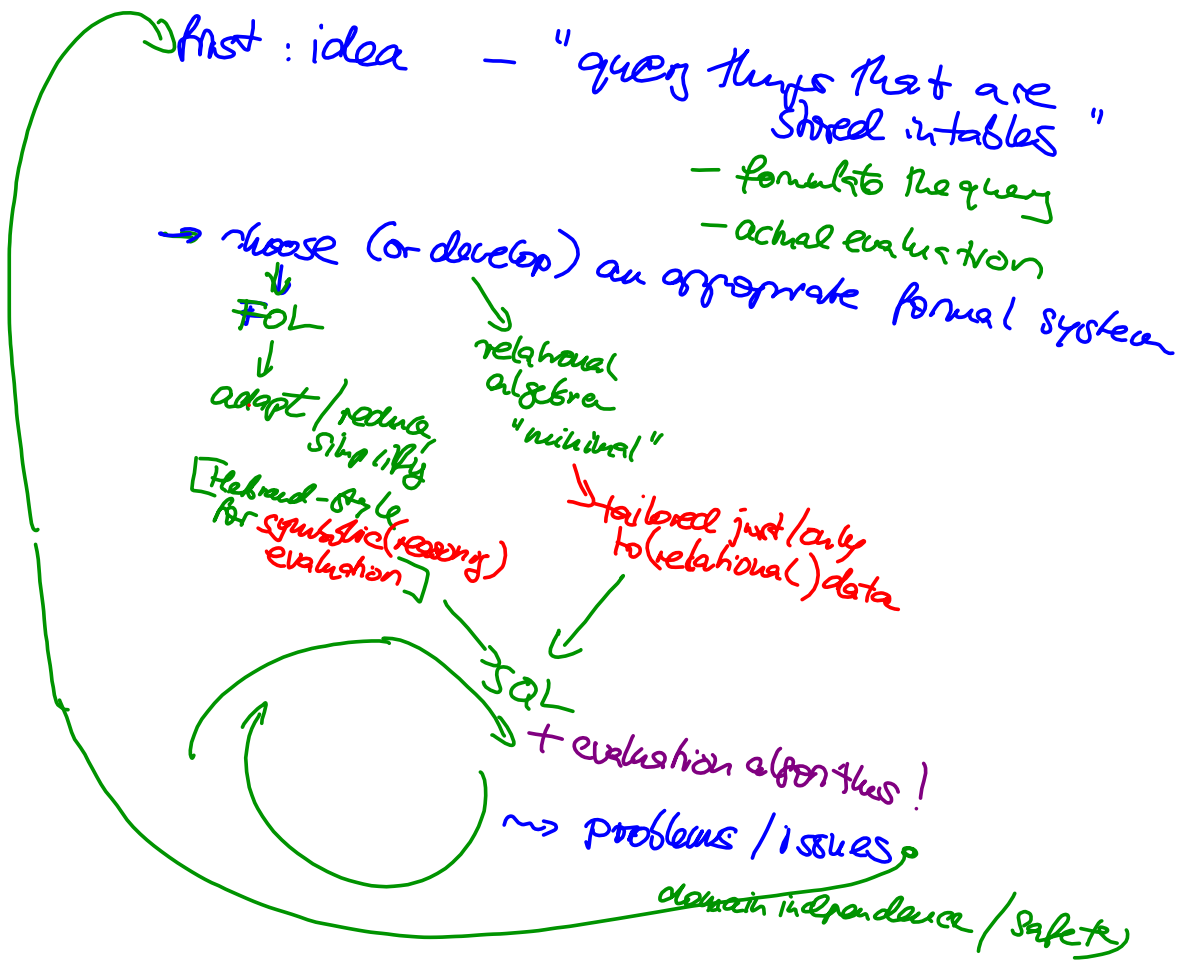 first : idea – "query things that are
stored in tables"
– formulate the query
– actual evaluation
→ choose (or develop) an appropriate formal system
FOL
adapt/reduce,
simplify
[Herbrand-style
for symbolic (reasoning)
evaluation]
relational
algebra
"minimal"
tailored just/only
to (relational) data
SQL
+ evaluation algorithms!
⇝ problems/issues
domain independence/safety